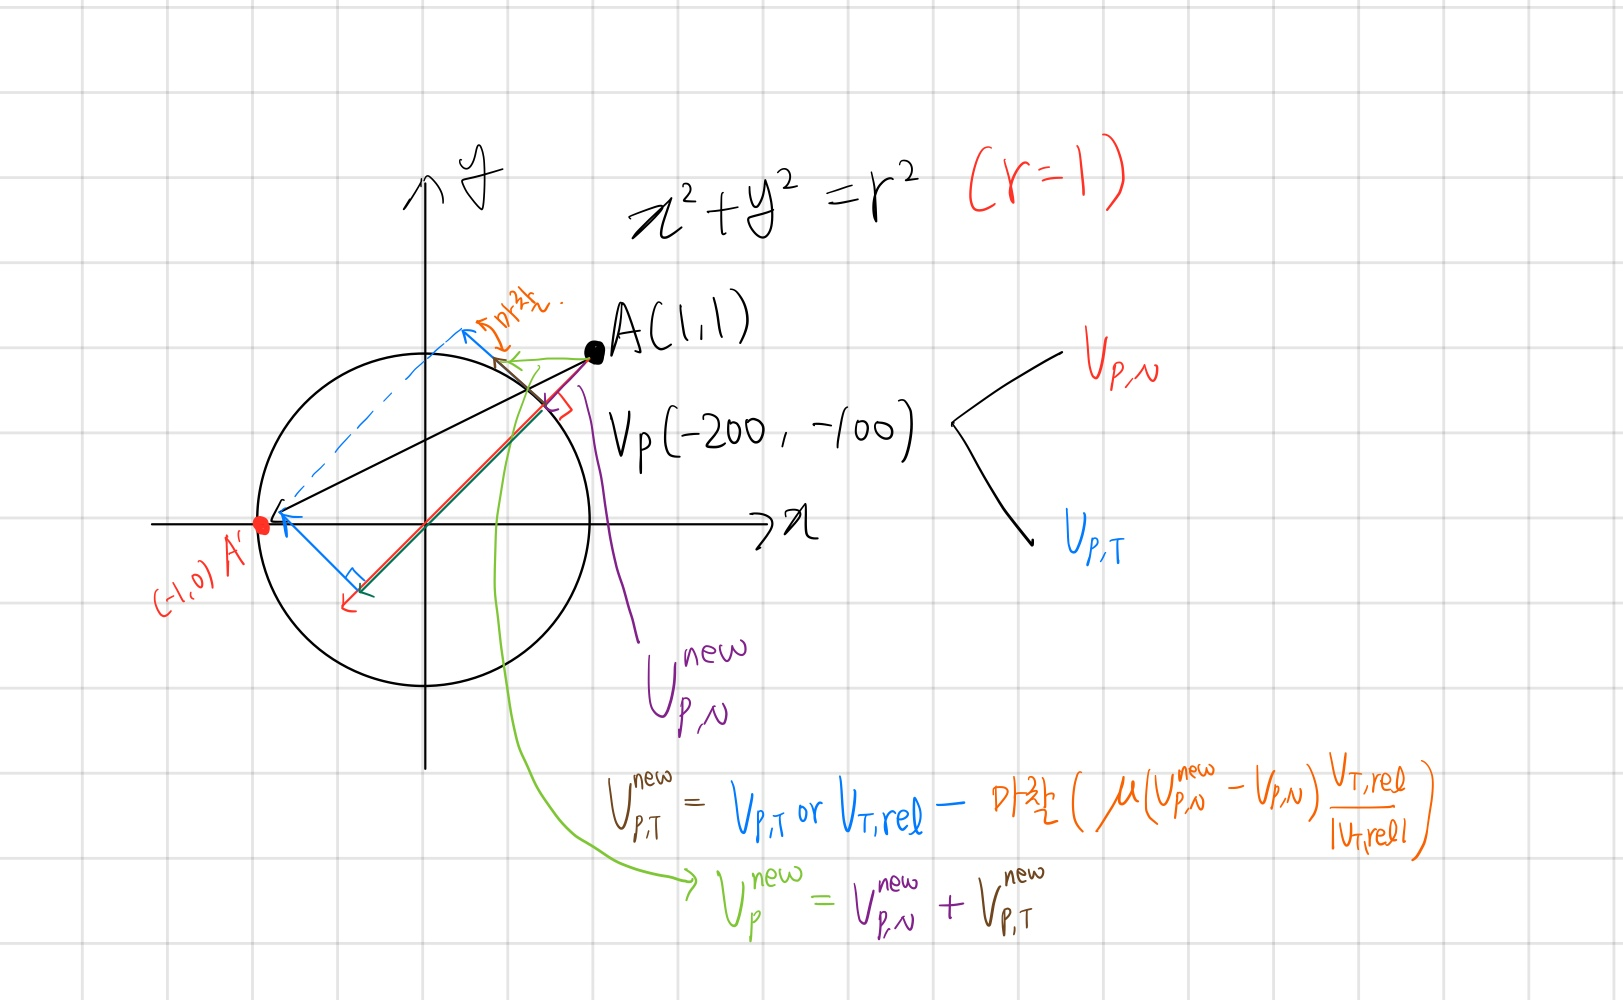 y
x² + y² = r² (r=1)
마찰
A(1,1)
V_P,N
V_P(-200, -100)
x
V_P,T
(-1,0) A'
V_P,N^new
V_P,T^new = V_P,T or V_T,rel - 마찰 ( μ(V_P,N^new - V_P,N) V_T,rel / |V_T,rel| )
V_P^new = V_P,N^new + V_P,T^new